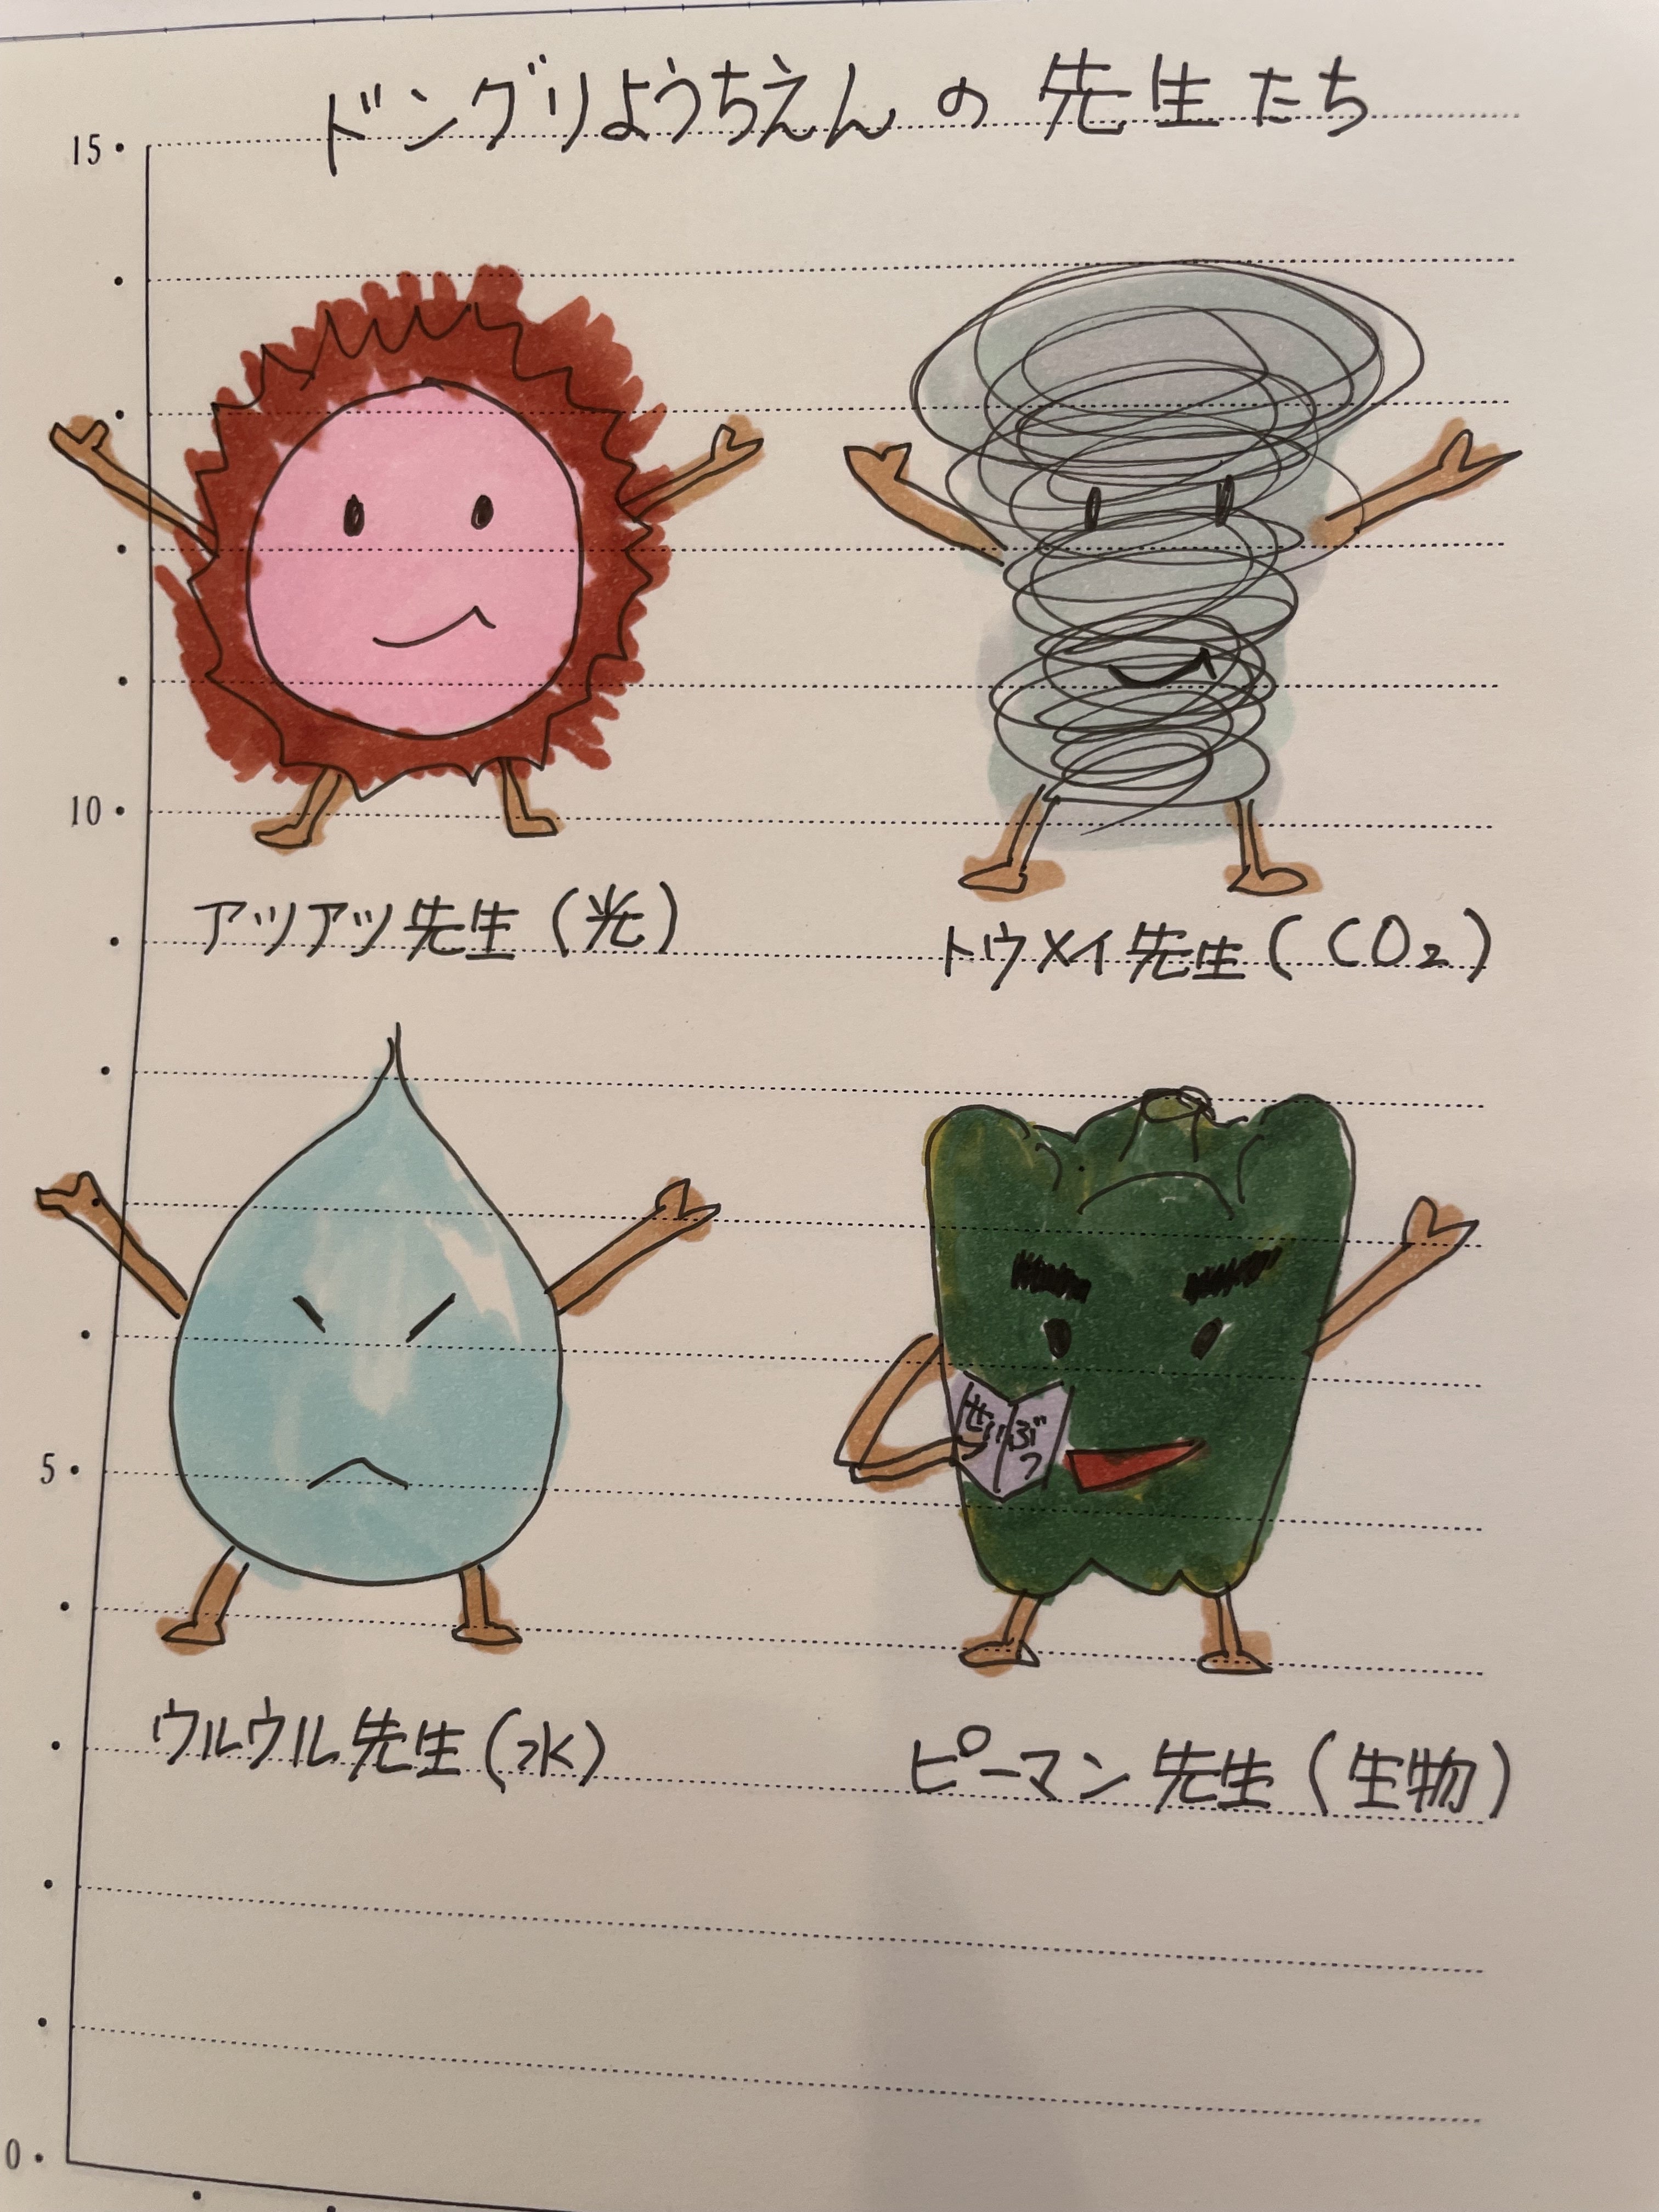 ドングリようちえんの先生たち
15
10
アツアツ先生(光)
トウメイ先生(CO₂)
5
せいぶつ
ウルウル先生(水)
ピーマン先生(生物)
0